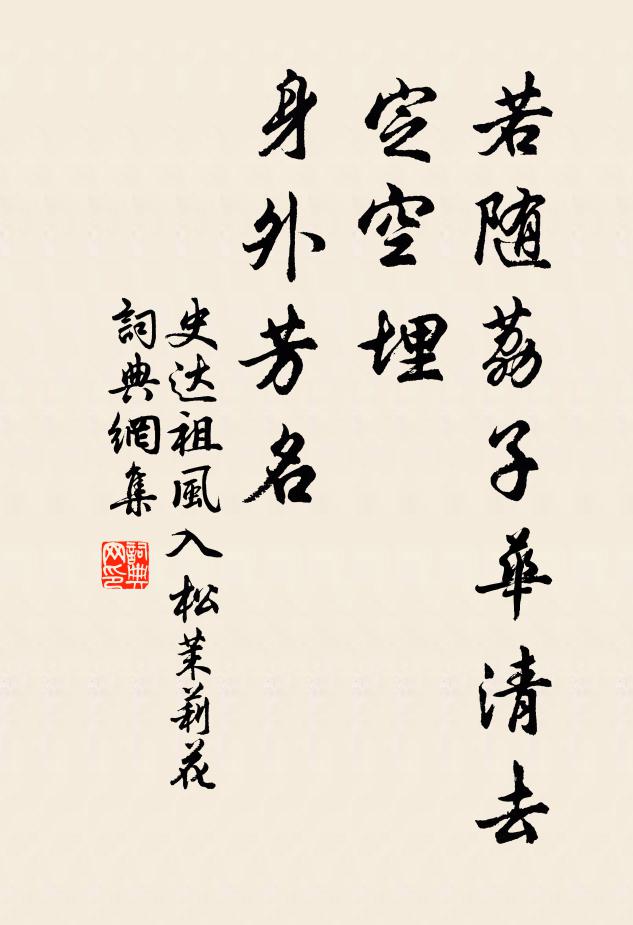 若随荔子華清去
定空埋
身外芳名
史达祖風入松茉莉花
詞典網集
詞典网印